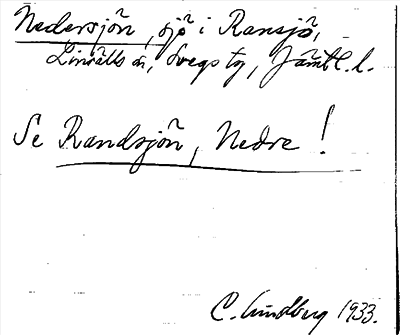 Nedersjön, sjö i Ransjö,
Linsälls sn, Svegs tg, Jämtl. l.
Se Randsjön, Nedre!
C. Lundberg 1933.